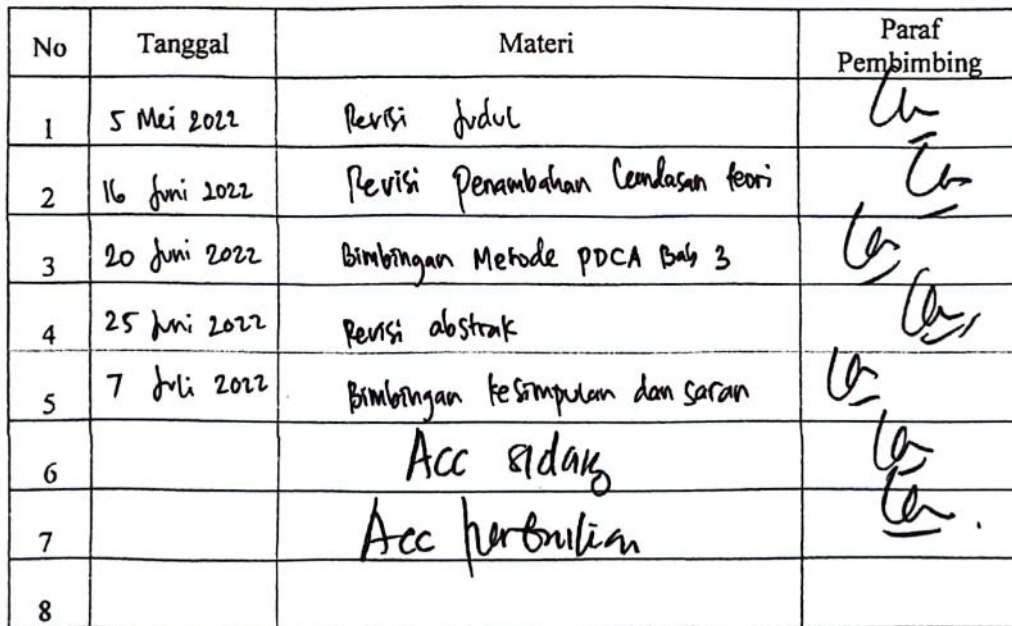 No Tanggal Materi Paraf Pembimbing
1 5 Mei 2022 Revisi Judul
2 16 Juni 2022 Revisi Penambahan Landasan teori
3 20 Juni 2022 Bimbingan Metode PDCA Bab 3
4 25 Juni 2022 Revisi abstrak
5 7 Juli 2022 Bimbingan kesimpulan dan saran
6 Acc sidang
7 Acc
8